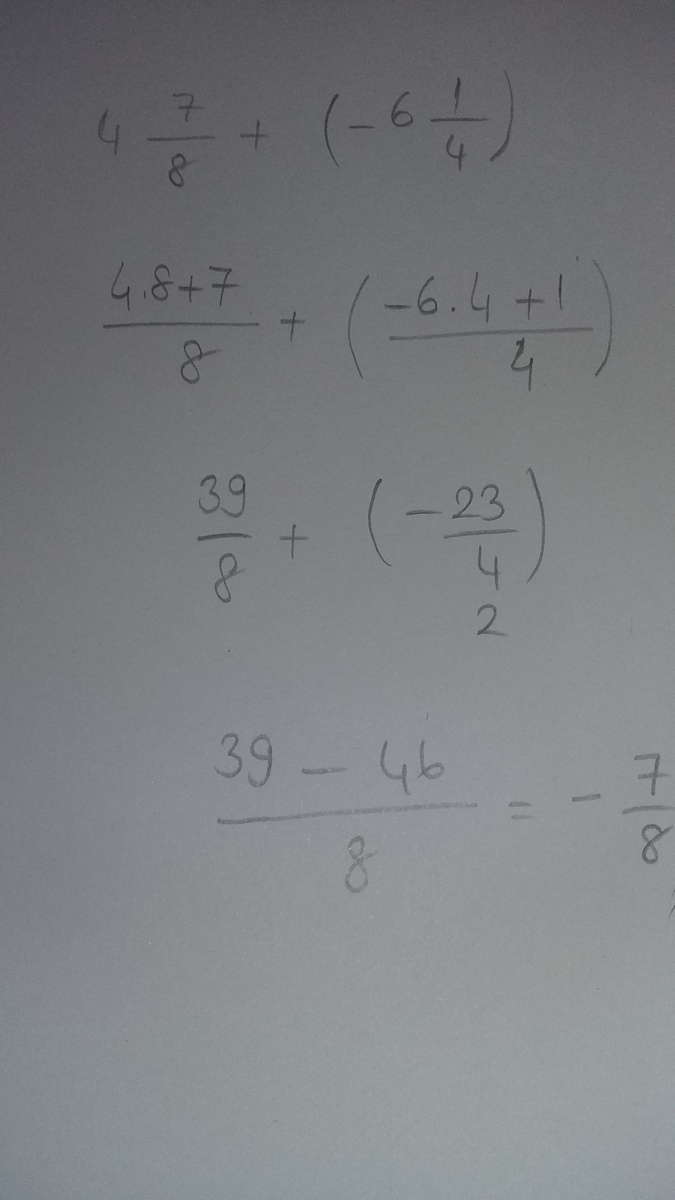 4 7/8 + (-6 1/4)
4.8+7/8 + (-6.4+1/4)
39/8 + (-23/4)
2
39 - 46/8 = - 7/8